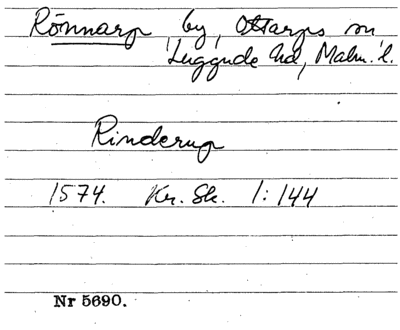 Rönnarp by, Ottarps sn
Luggude hd, Malm. l.
Rinderup
1574. Kr. Sk. 1:144
Nr 5690.